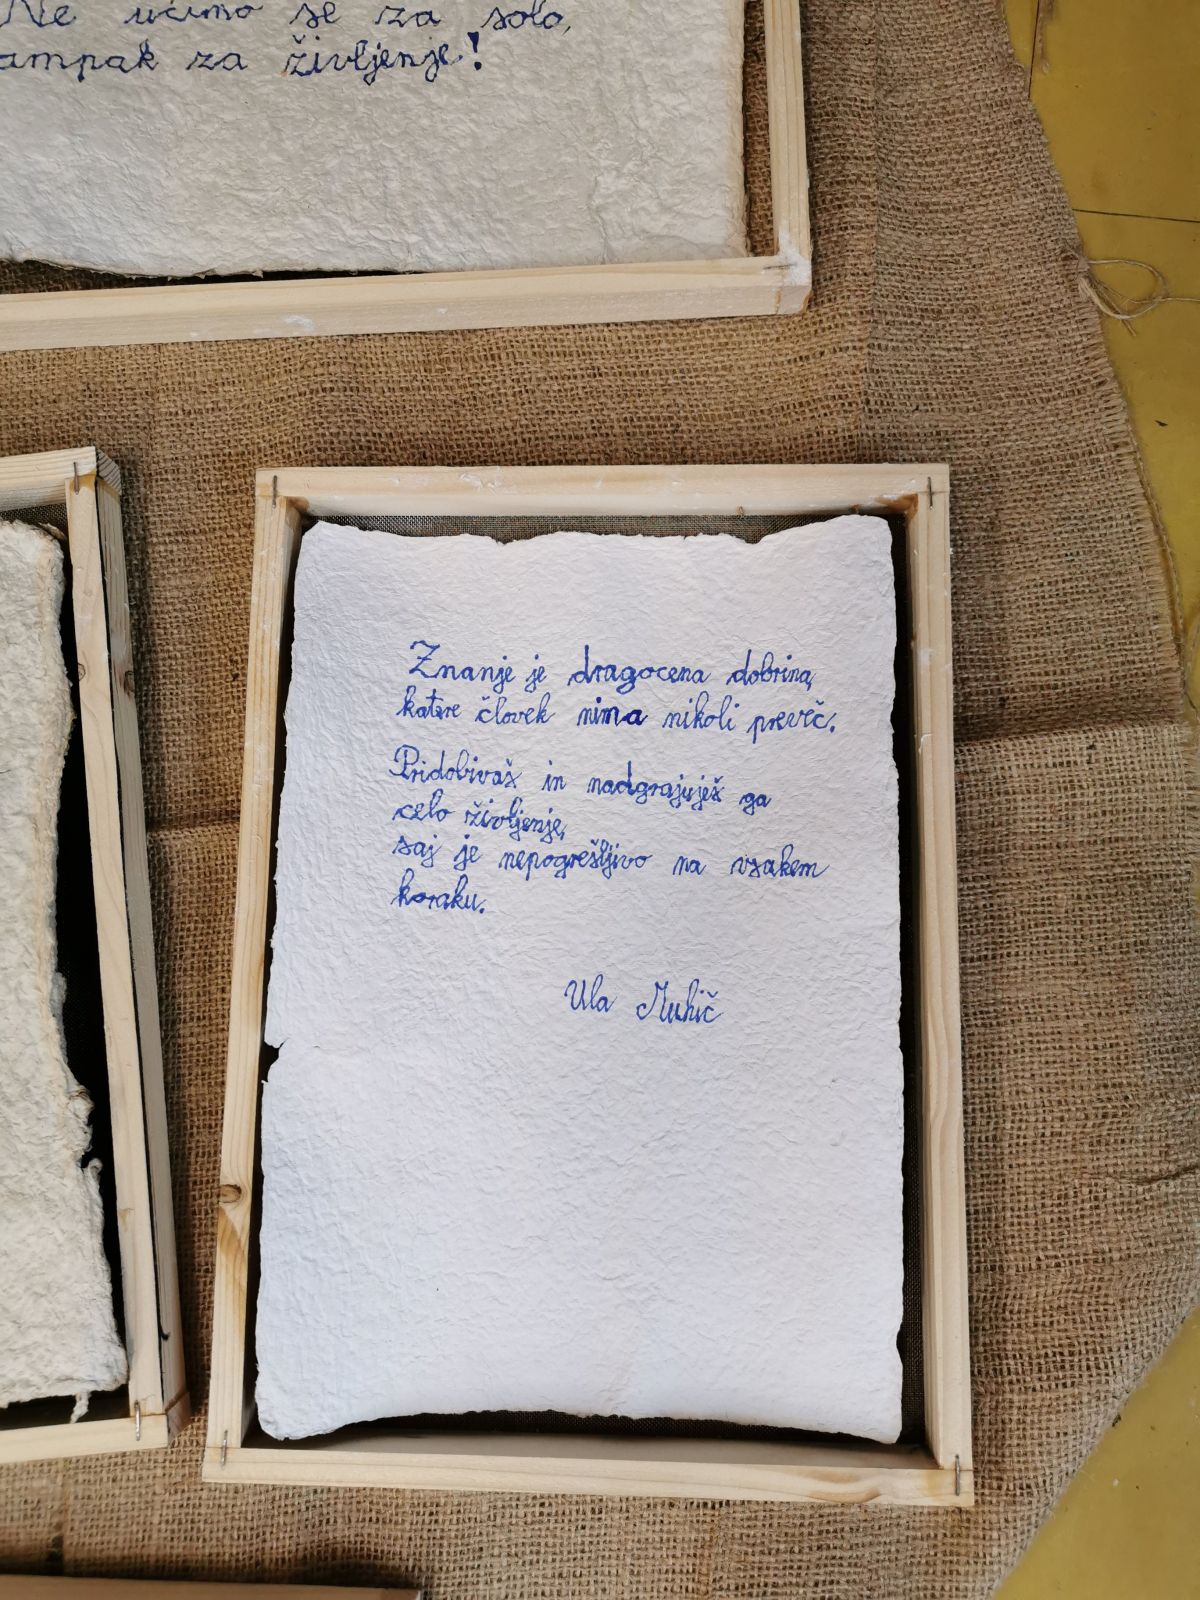 Ne učimo se za šolo,
ampak za življenje!
Znanje je dragocena dobrina,
katere človek nima nikoli preveč.
Pridobivaš in nadgrajuješ ga
celo življenje,
saj je nepogrešljivo na vsakem
koraku.
Ula Muhič